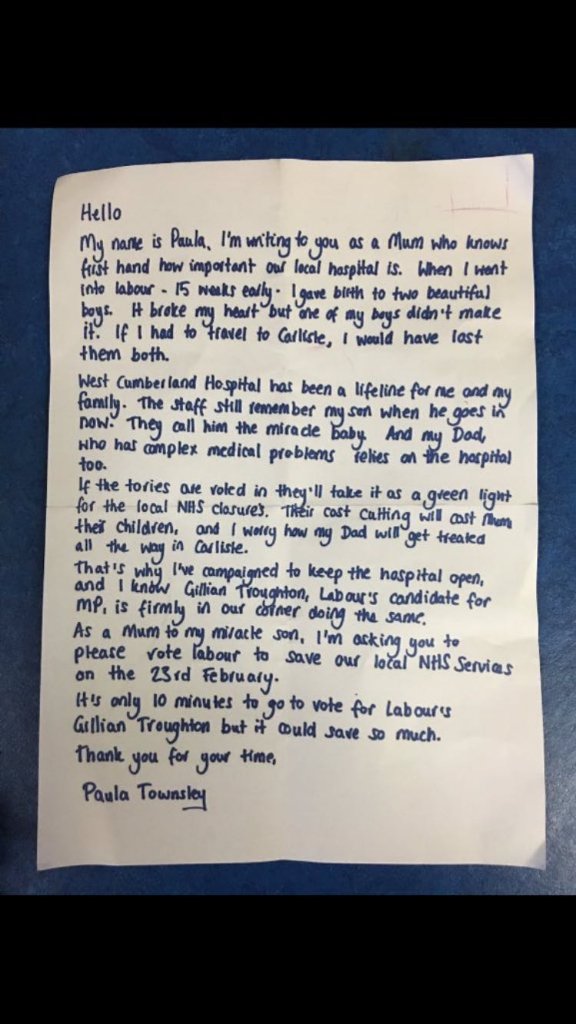 Hello
My name is Paula, I'm writing to you as a Mum who knows
first hand how important our local hospital is. When I went
into labour - 15 weeks early - I gave birth to two beautiful
boys. It broke my heart but one of my boys didn't make
it. If I had to travel to Carlisle, I would have lost
them both.
West Cumberland Hospital has been a lifeline for me and my
family. The staff still remember my son when he goes in
now. They call him the miracle baby. And my Dad,
who has complex medical problems relies on the hospital
too.
If the tories are voted in they'll take it as a green light
for the local NHS closures. Their cost cutting will cost Mums
their children, and I worry how my Dad will get treated
all the way in Carlisle.
That's why I've campaigned to keep the hospital open,
and I know Gillian Troughton, Labour's candidate for
MP, is firmly in our corner doing the same.
As a Mum to my miracle son, I'm asking you to
please vote labour to save our local NHS Services
on the 23rd February.
It's only 10 minutes to go to vote for Labour's
Gillian Troughton but it could save so much.
Thank you for your time,
Paula Townsley